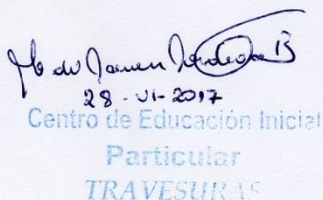 28-VI-2017
Centro de Educación Inicial
Particular
TRAVESURAS